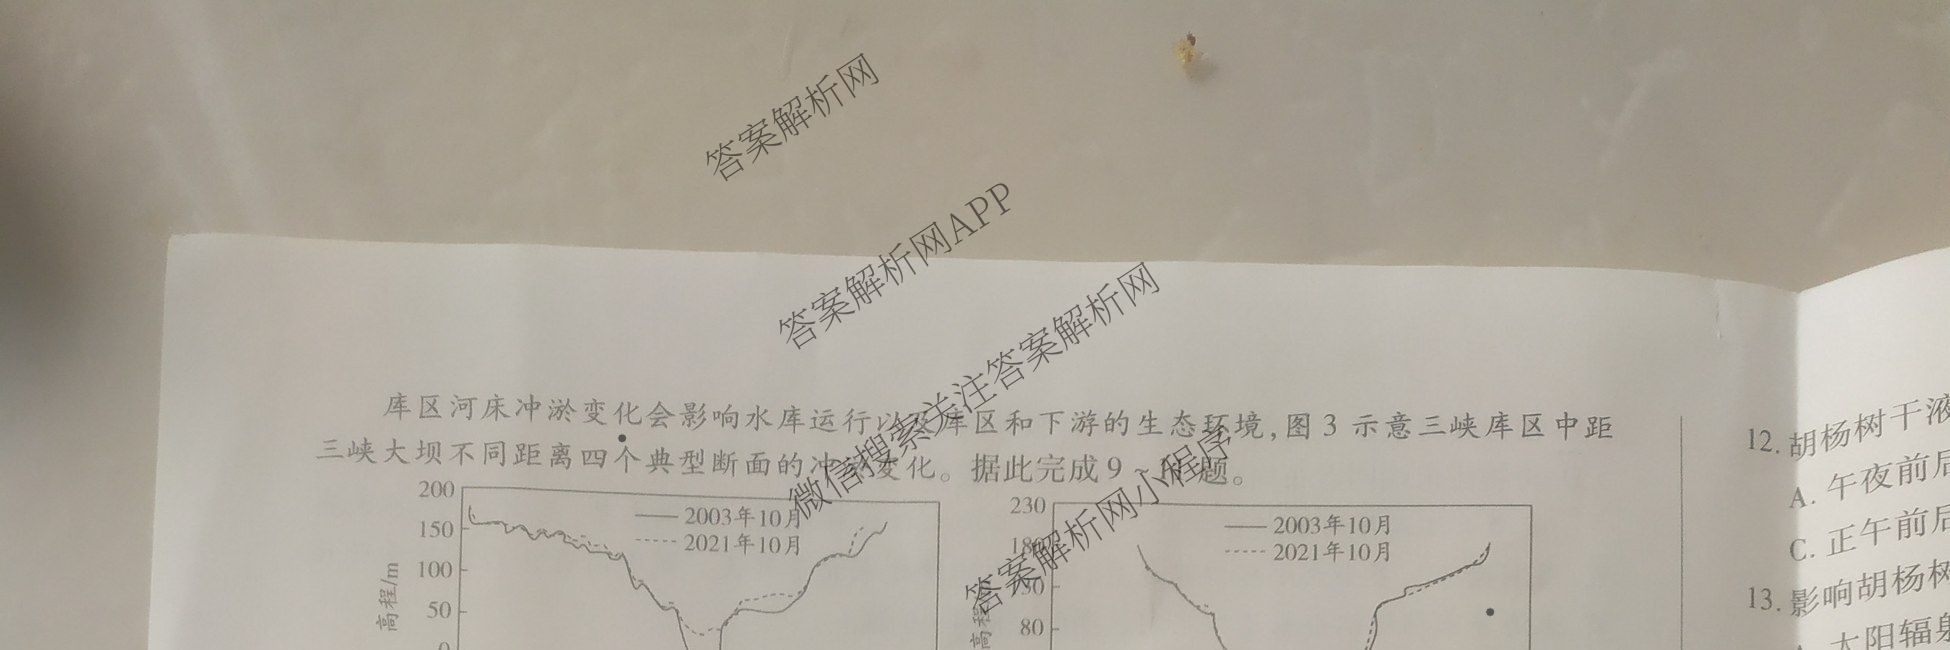 答案解析网
答案解析网APP
微信搜索关注答案解析网
答案解析网小程序
库区河床冲淤变化会影响水库运行以及库区和下游的生态环境,图3示意三峡库区中距
三峡大坝不同距离四个典型断面的冲淤变化。据此完成9~ 题。
200
150
100
50
0
高程/m
2003年10月
2021年10月
230
80
高程
2003年10月
2021年10月
12. 胡杨树干液
A. 午夜前后
C. 正午前后
13. 影响胡杨树
太阳辐射